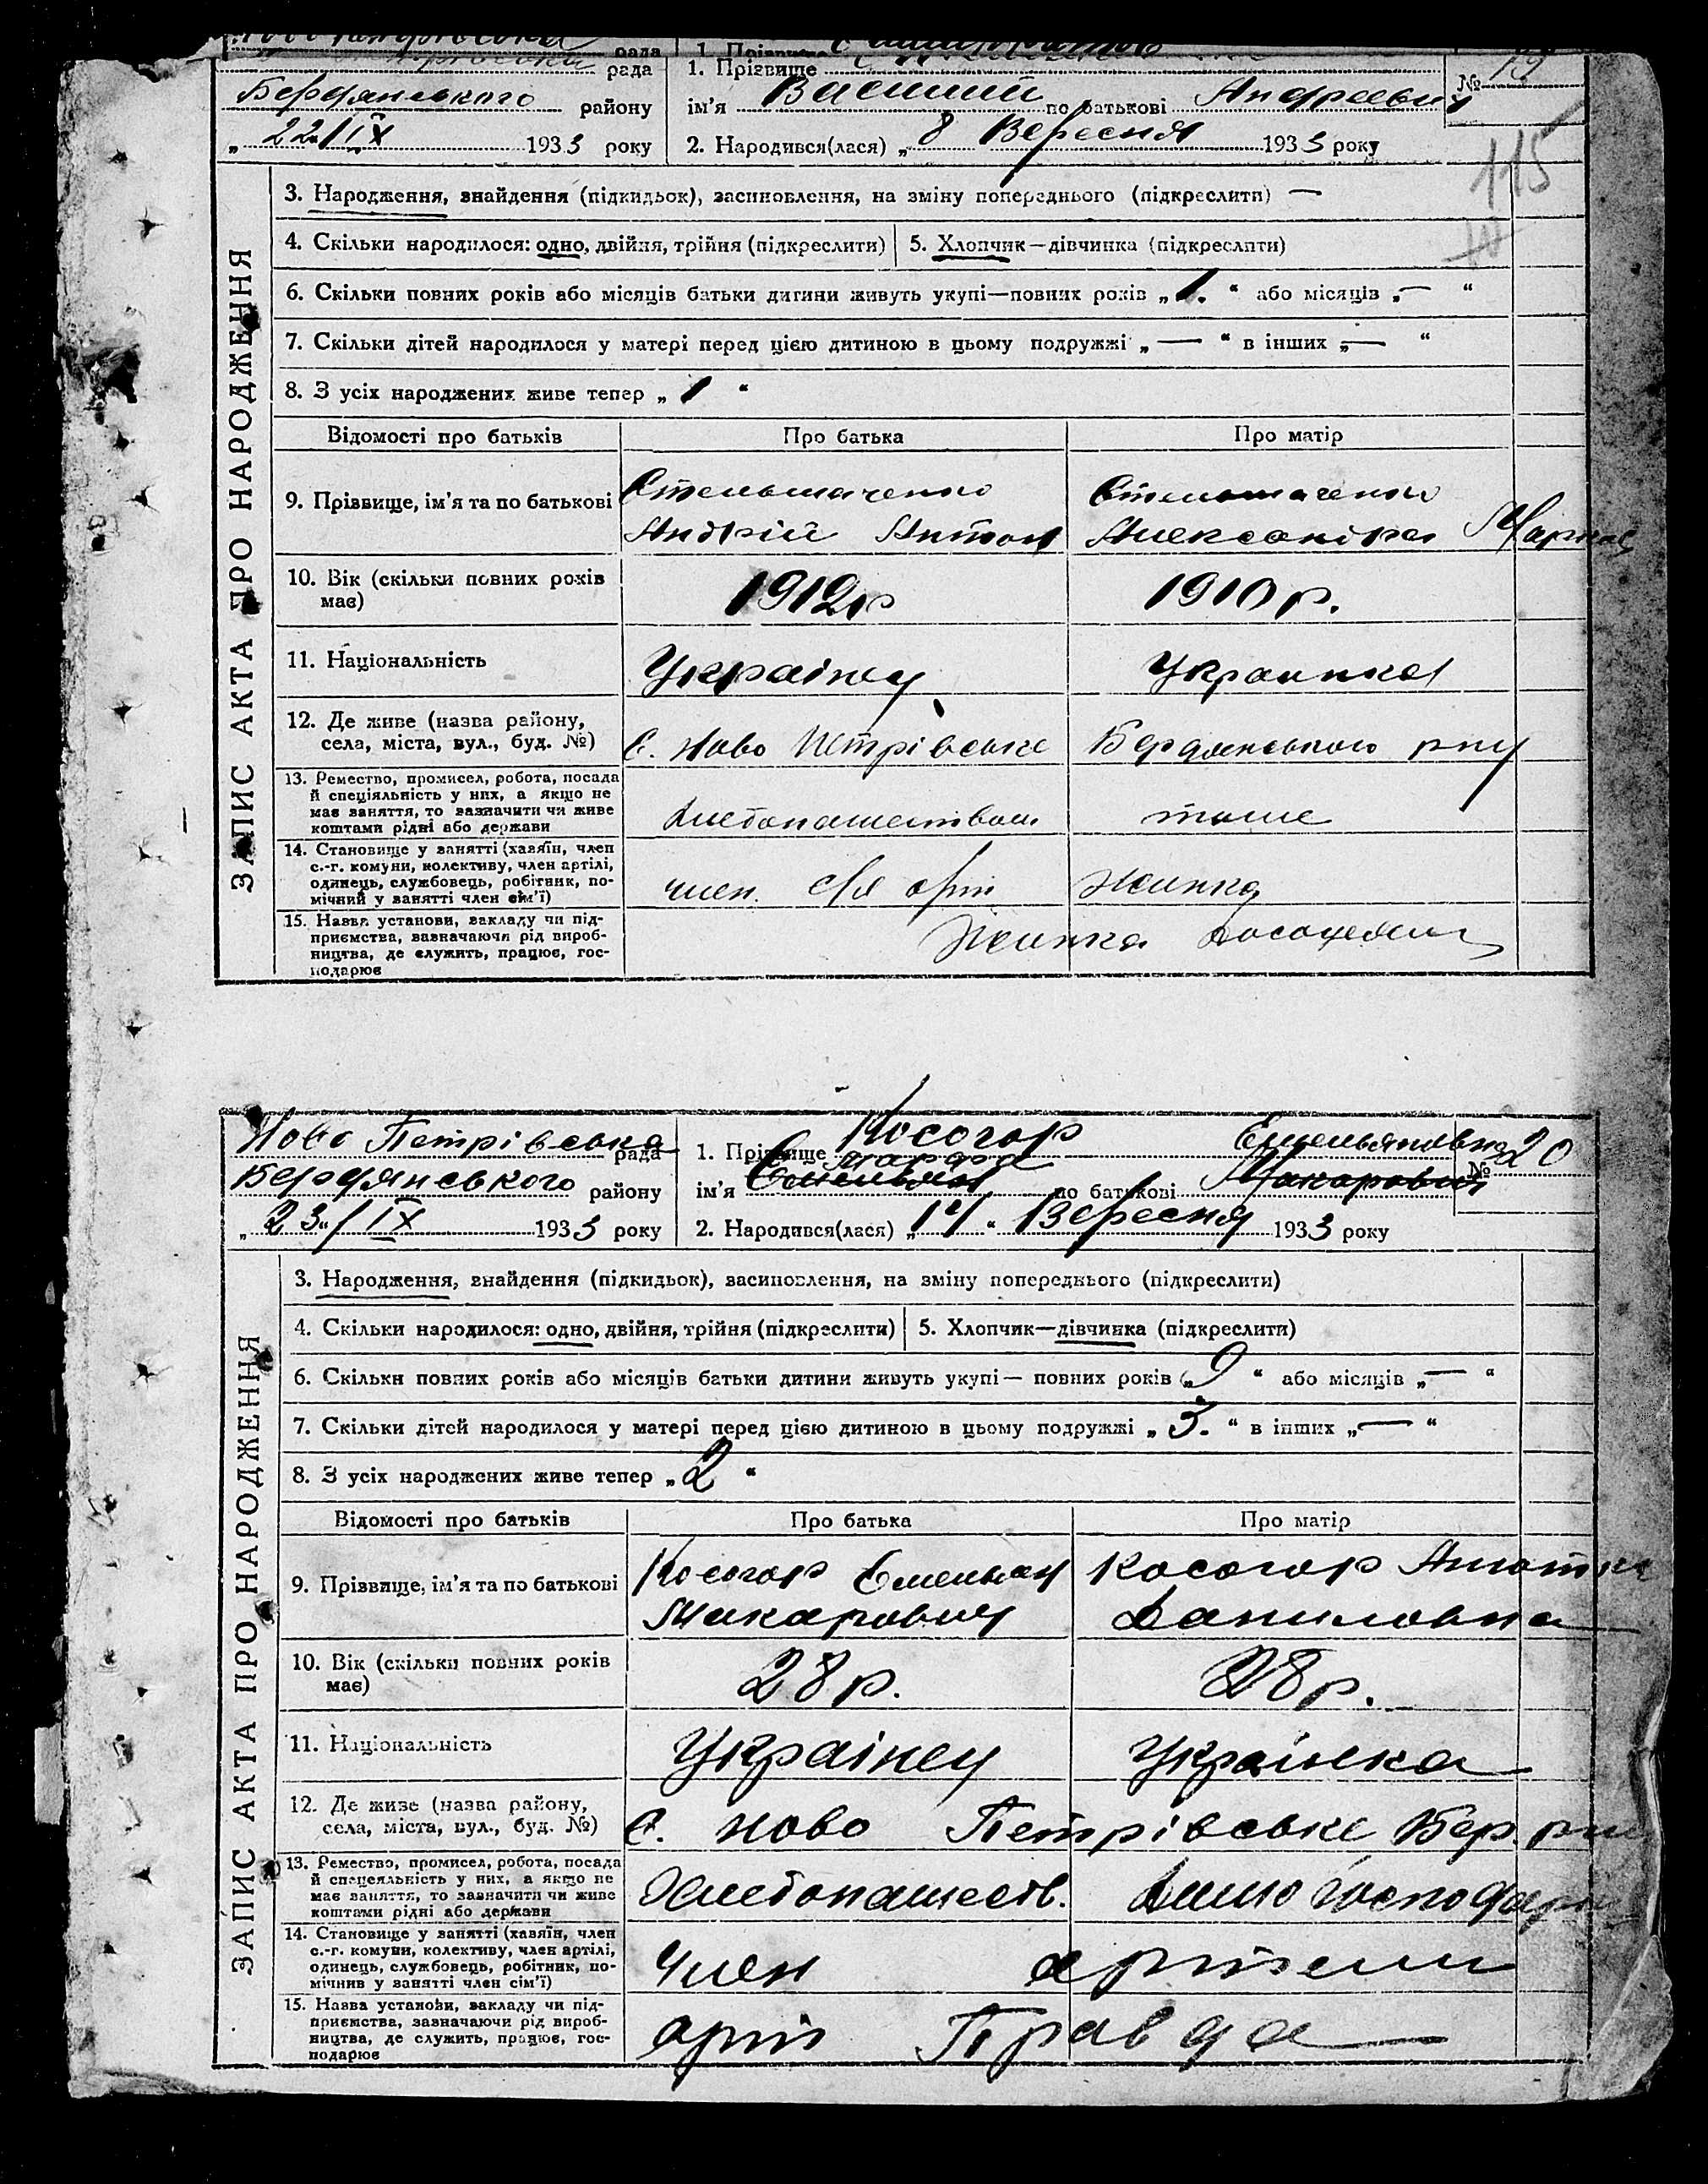 рада 1. Прізвище № 19
Бердянського району ім'я Василий по батькові Андреевич
„ 22/IX 1933 року 2. Народився(лася) „ 8 Вересня 1933 року
115
ЗАПИС АКТА ПРО НАРОДЖЕННЯ
3. Народження, знайдення (підкидьок), засиновлення, на зміну попереднього (підкреслити) —
4. Скільки народилося: одно, двійня, трійня (підкреслити) 5. Хлопчик—дівчинка (підкреслити)
6. Скільки повних років або місяців батьки дитини живуть укупі—повних років „ 1. “ або місяців „ — “
7. Скільки дітей народилося у матері перед цією дитиною в цьому подружжі „ — “ в інших „ — “
8. З усіх народжених живе тепер „ 1 “
Відомості про батьків Про батька Про матір
9. Прізвище, ім'я та по батькові Стельмаченко Стельмаченко
Андрій Антон Александра
10. Вік (скільки повних років 1912р 1910р.
має)
11. Національність Українец Украинка
12. Де живе (назва району,
села, міста, вул., буд. №) С. Ново Петрівське Бердянського рну
13. Ремество, промисел, робота, посада
й спеціяльність у них, а якщо не
має заняття, то зазначити чи живе
коштами рідні або держави
14. Становище у занятті (хазяїн, член
с.-г. комуни, колективу, член артілі,
одинець, службовець, робітник, по-
мічний у занятті член сім'ї) член
15. Назва установи, закладу чи під-
приємства, зазначаючи рід вироб-
ництва, де служить, працює, гос-
подарює
Ново Петрівська рада 1. Прізвище Косогор Емельяновна № 20
Бердянського району ім'я Емельян Марфа по батькові Макарович
„ 23 „/IX 1933 року 2. Народився(лася) „ 14 “ Вересня 1933 року
ЗАПИС АКТА ПРО НАРОДЖЕННЯ
3. Народження, знайдення (підкидьок), засиновлення, на зміну попереднього (підкреслити)
4. Скільки народилося: одно, двійня, трійня (підкреслити) 5. Хлопчик—дівчинка (підкреслити)
6. Скільки повних років або місяців батьки дитини живуть укупі— повних років „ 9 “ або місяців „ — “
7. Скільки дітей народилося у матері перед цією дитиною в цьому подружжі „ 3. “ в інших „ — “
8. З усіх народжених живе тепер „ 2 “
Відомості про батьків Про батька Про матір
9. Прізвище, ім'я та по батькові Косогор Емельян Косогор
Макарович Даниловна
10. Вік (скільки повних років 28р. 28р.
має)
11. Національність Українец Українка
12. Де живе (назва району,
села, міста, вул., буд. №) С. Ново Петрівське Бер. рну
13. Ремество, промисел, робота, посада
й спецеяльність у них, а якщо не
має заняття, то зазначити чи живе
коштами рідні або держави Хлебопашеств.
14. Становище у занятті (хазяїн, член
с.-г. комуни, колективу, член артілі,
одинець, службовець, робітник, по-
мічнив у занятті член сім'ї) Член артели
15. Назва установи, закладу чи під-
приємства, зазначаючи рід вироб-
ництва, де служить, працює, гос-
подарює арт Правда